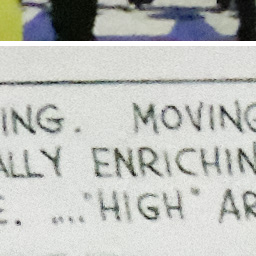 ING. MOVING
ALLY ENRICHIN
E. ...."HIGH" AR